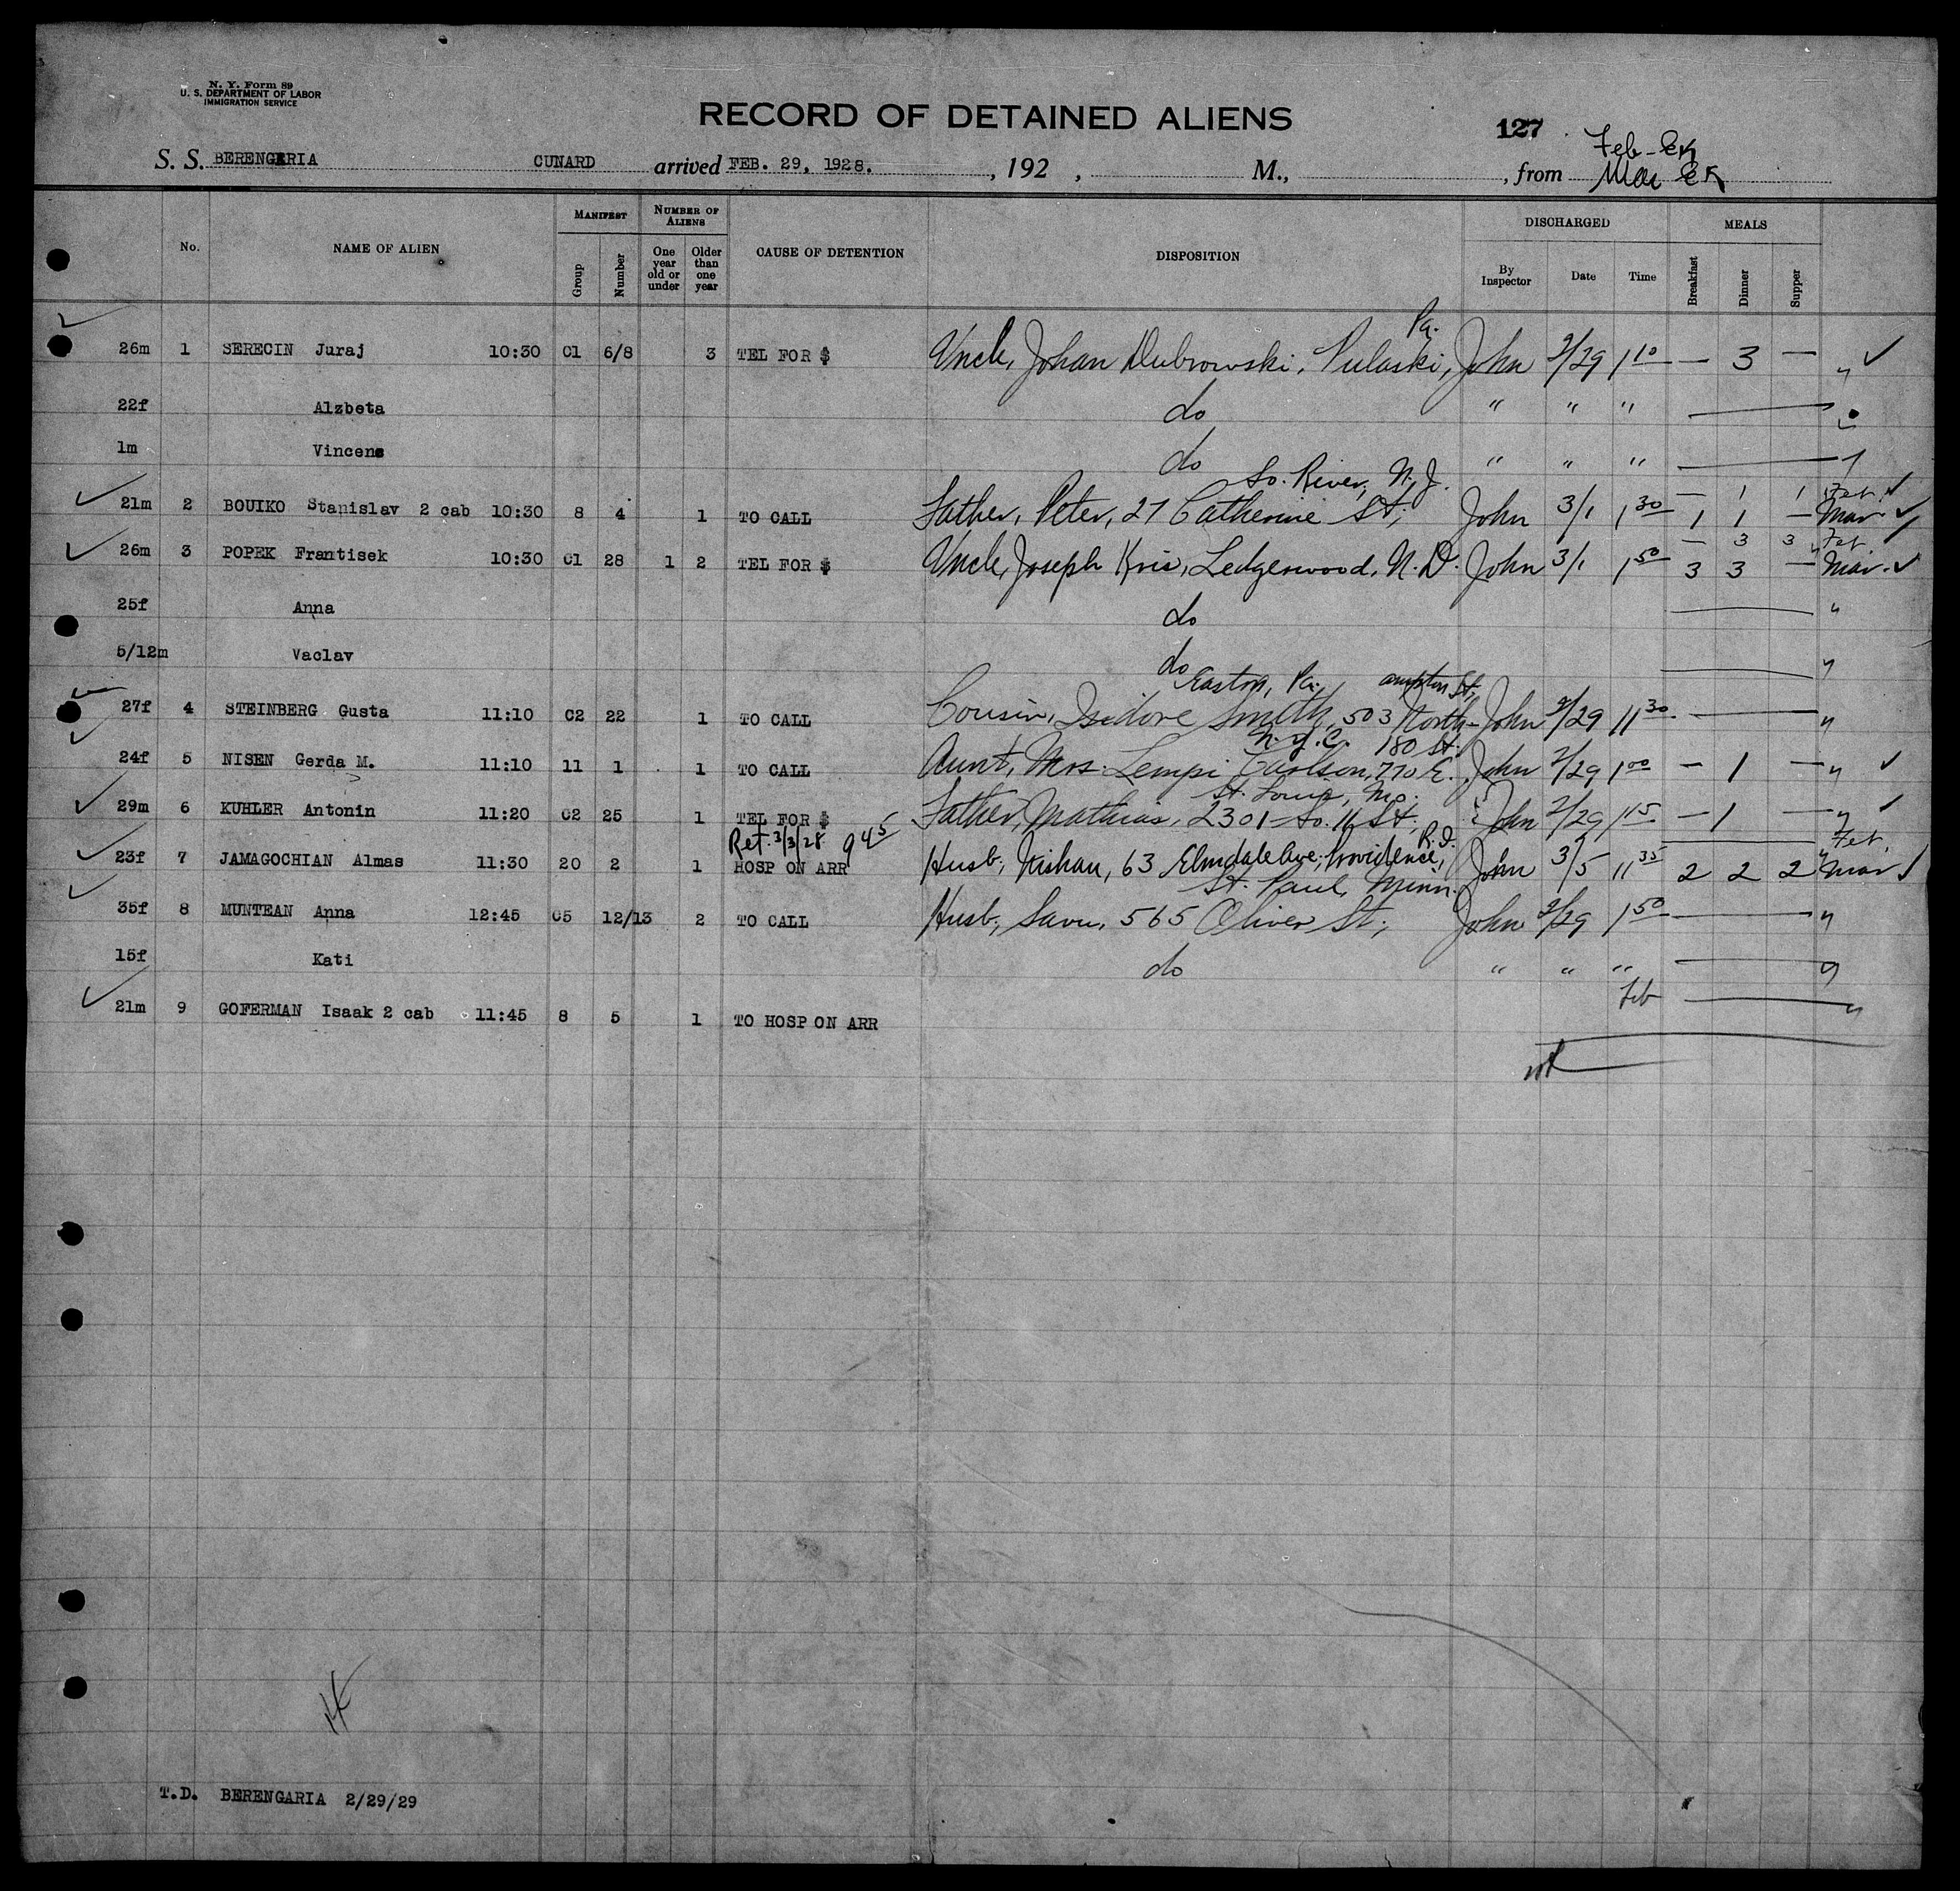 N. Y. Form 89
U. S. DEPARTMENT OF LABOR
IMMIGRATION SERVICE
RECORD OF DETAINED ALIENS
127
Feb-
S. S. BERENGARIA CUNARD arrived FEB. 29, 1928. , 192 , M., , from Mar
No. NAME OF ALIEN MANIFEST Group Number NUMBER OF ALIENS One year old or under Older than one year CAUSE OF DETENTION DISPOSITION DISCHARGED By Inspector Date Time MEALS Breakfast Dinner Supper
Pa.
26m 1 SERECIN Juraj 10:30 C1 6/8 3 TEL FOR $ Uncle, Johan Dubrowski, Pulaski, John 2/29 1 10 — 3 — "
22f Alzbeta do " " "
1m Vincens do " " "
So. River, N.J. — 1 1 Feb.
21m 2 BOUIKO Stanislav 2 cab 10:30 8 4 1 TO CALL Father, Peter, 27 Catherine St; John 3/1 1 30 1 1 — Mar.
— 3 3 Feb
26m 3 POPEK Frantisek 10:30 C1 28 1 2 TEL FOR $ Uncle, Joseph Kris, Ledgerwood, N. D. John 3/1 1 50 3 3 — Mar.
25f Anna do "
5/12m Vaclav do "
Easton, Pa. ampton St;
27f 4 STEINBERG Gusta 11:10 C2 22 1 TO CALL Cousin, Isidore Smith, 503 North- John 2/29 11 30 — "
N.Y.C. 180 St.
24f 5 NISEN Gerda M. 11:10 11 1 1 TO CALL Aunt, Mrs. Lempi Carlson, 770 E. John 2/29 1 00 — 1 — "
St. Louis, Mo.
29m 6 KUHLER Antonin 11:20 C2 25 1 TEL FOR $ Father, Mathias, 2301 - So. 11 St; John 2/29 1 15 — 1 — "
Ret. 3/3/28 9 45 R.I. Feb.
23f 7 JAMAGOCHIAN Almas 11:30 20 2 1 HOSP ON ARR Husb; Nishan, 63 Elmdale Ave; Providence, John 3/5 11 35 2 2 2 Mar
St. Paul, Minn.
35f 8 MUNTEAN Anna 12:45 C5 12/13 2 TO CALL Husb; Savu, 565 Oliver St; John 2/29 1 50 — "
15f Kati do " " " "
21m 9 GOFERMAN Isaak 2 cab 11:45 8 5 1 TO HOSP ON ARR Feb — "
T.D. BERENGARIA 2/29/29